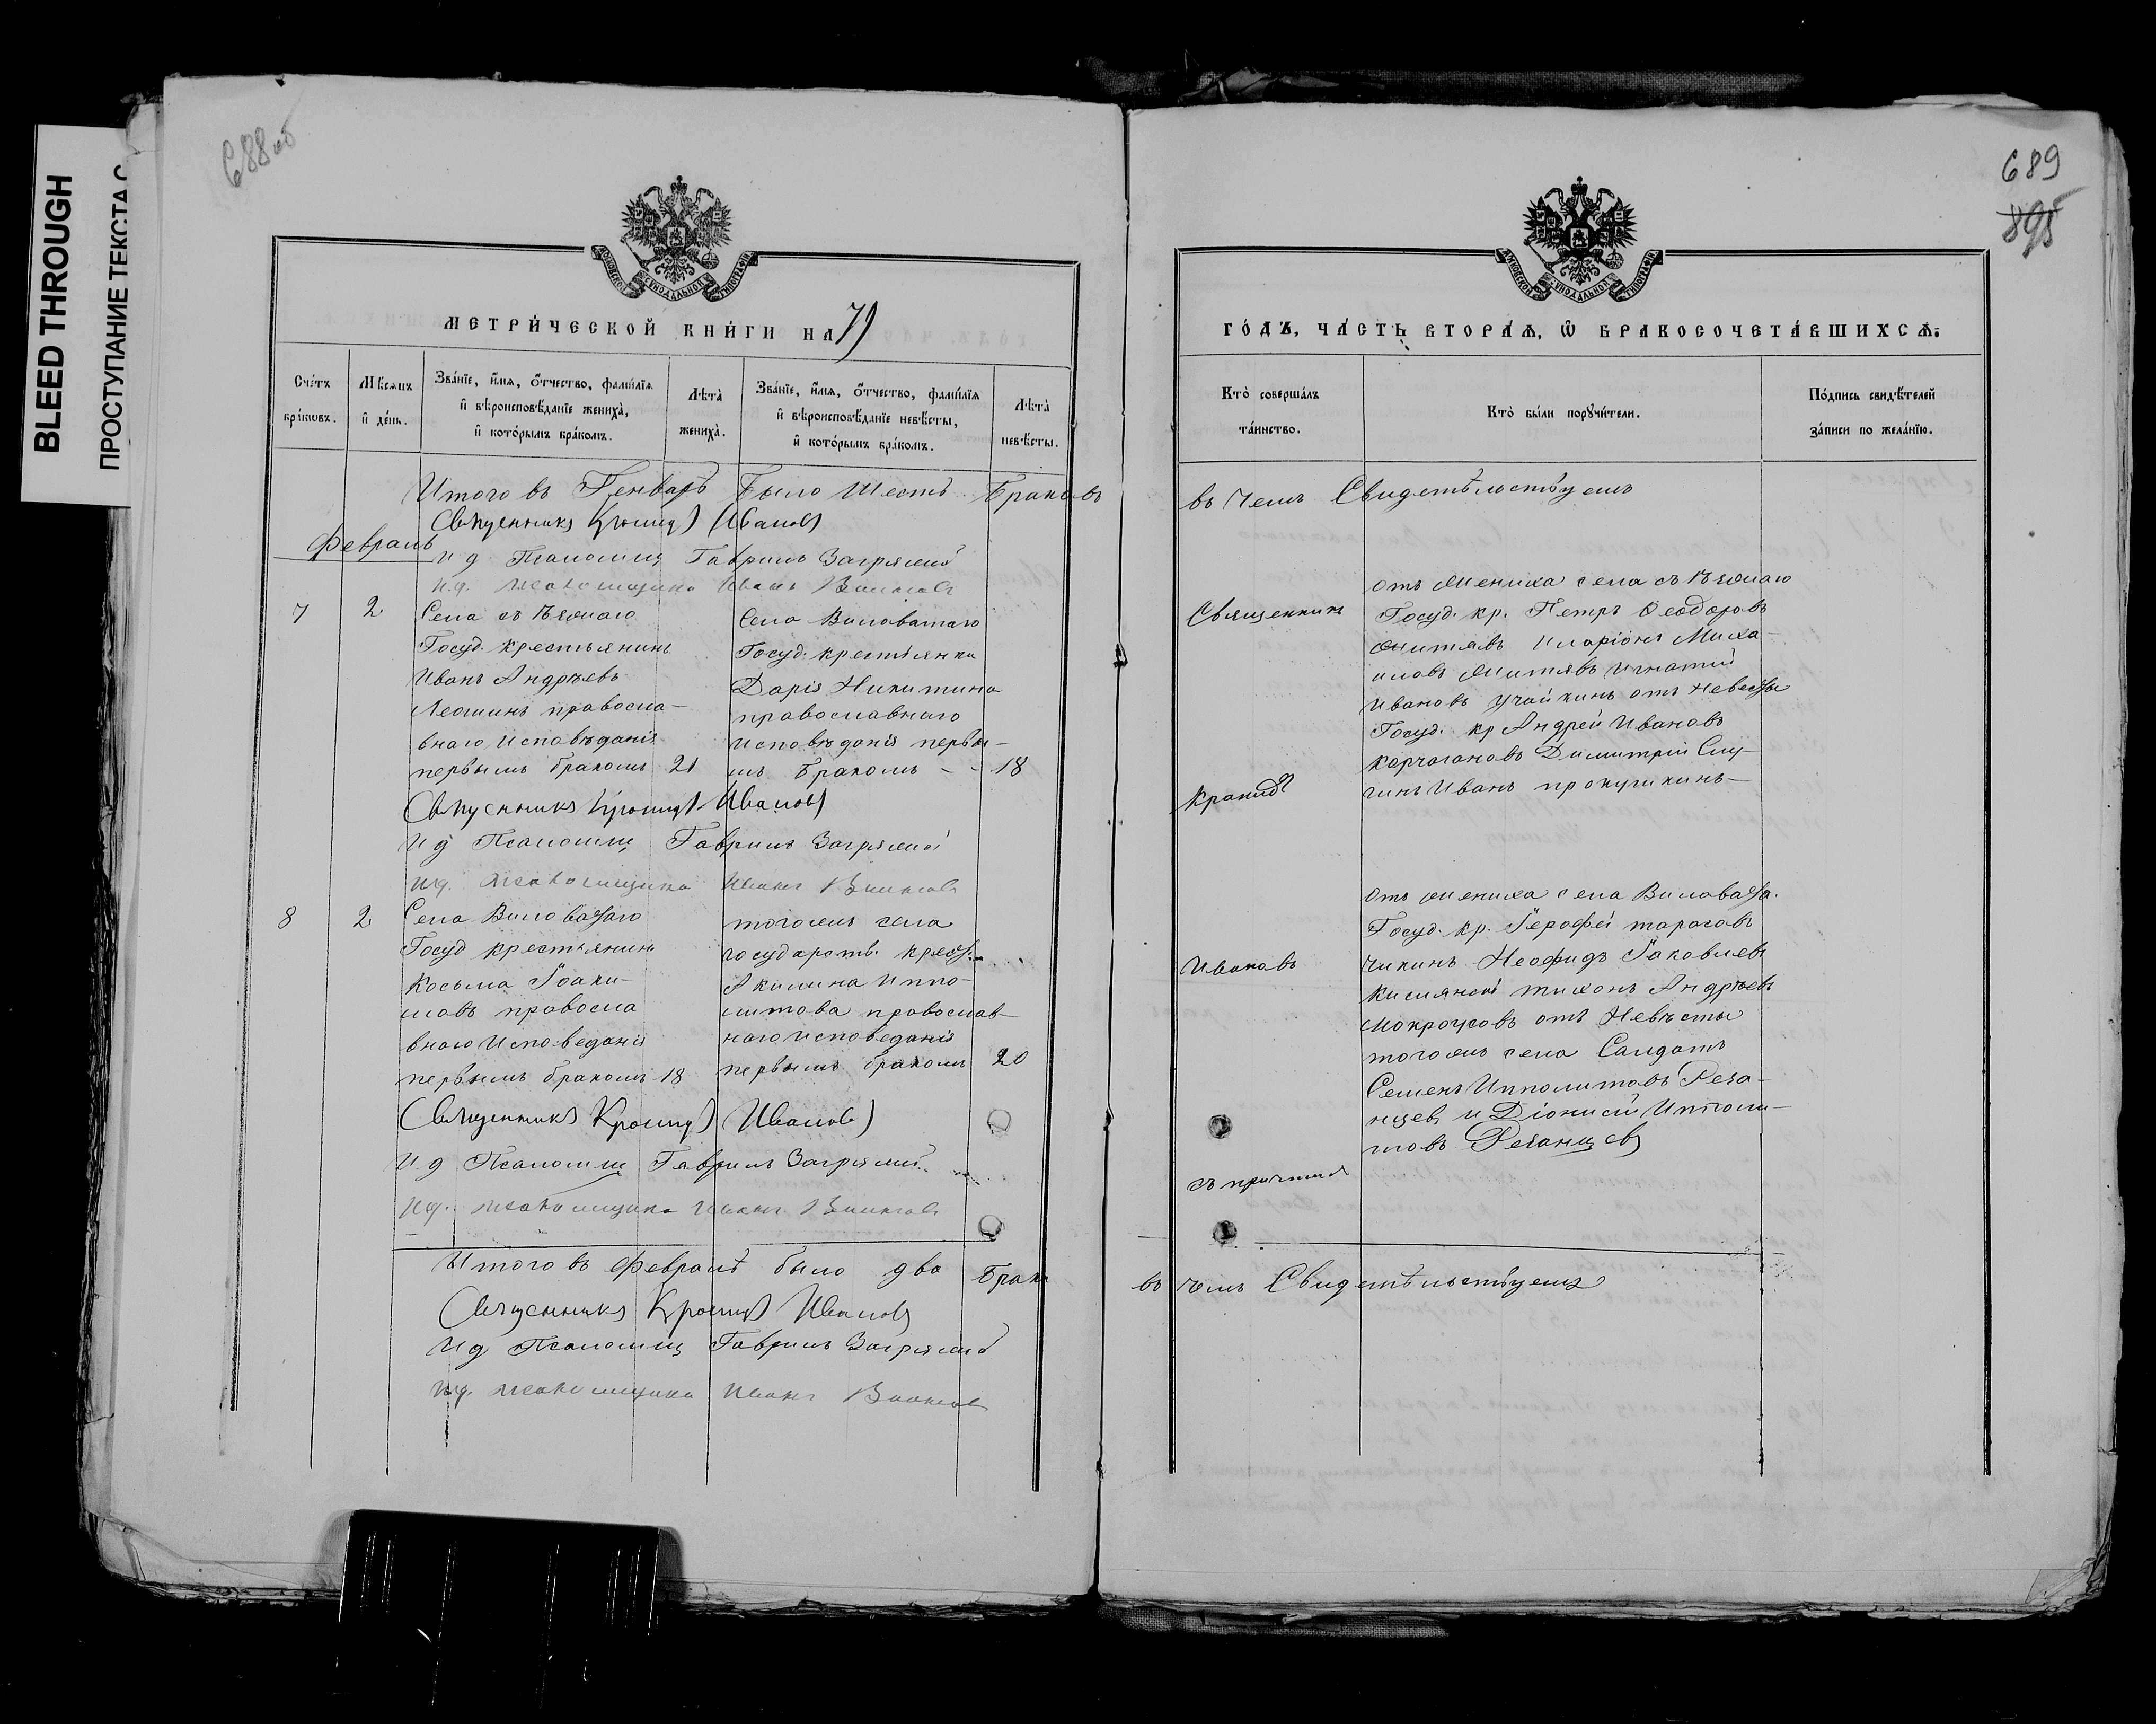 BLEED THROUGH
ПРОСТУПАНИЕ ТЕКСТА С
688 об
МЕТРИ́ЧЕСКОЙ КНИ́ГИ НА 79
Сче́тъ бра́ковъ.
Мѣ́сяцъ и҆ де́нь.
Зва́нїе, и҆́мя, ѻ҆́тчество, фами́лїя и҆ вѣроисповѣ́данїе жениха̀, и҆ кото́рымъ бра́комъ.
Лѣ́та жениха̀.
Зва́нїе, и҆́мя, ѻ҆́тчество, фами́лїя и҆ вѣроисповѣ́данїе невѣ́сты, и҆ кото́рымъ бра́комъ.
Лѣ́та невѣ́сты.
Итого въ Генварѣ было шесть Браковъ
Священникъ Кронидъ Ивановъ
Февраль
И д Псаломщ Гавриилъ Загрянскій
И.д. псаломщика Иванъ
7 2
Села съ Ѣзжаго
Госуд. крестьянинъ
Иванъ Андрѣевъ
Леошинъ правосла-
внаго исповѣданія
первымъ бракомъ 21
Село Виловатаго
Госуд. крестьянка
Дарія Никитина
православнаго
исповѣданія первы-
мъ Бракомъ - - 18
Священникъ Кронидъ Ивановъ
И д Псаломщ Гавриилъ Загрянскій
И.д. псаломщика Иванъ
8 2
Села Виловатаго
Госуд крестьянинъ
Косьма Іоаки-
мовъ правосла
внаго Исповеданія
первымъ бракомъ 18
тогожъ села
государств. крест.
Акилина Иппо-
литова православ-
наго исповеданія
первымъ бракомъ 20
Священникъ Кронидъ Ивановъ
И д Псаломщ Гавриилъ Загрянскій
И.д. псаломщика Иванъ
Итого въ Февралѣ было два Брак
Священникъ Кронидъ Ивановъ
И д Псаломщ Гавриилъ Загрянскій
И.д. псаломщика Иванъ
689
895
ГО́ДЪ, ЧА́СТЬ ВТОРА́Я, Ѽ БРАКОСОЧЕТА́ВШИХСЯ:
Кто̀ соверша́лъ та́инство.
Кто̀ бы́ли поручи́тели.
По́дпись свидѣ́телей за́писи по жела́нїю.
въ чемъ Свидетѣльствуемъ
Священникъ
Кранидъ
отъ жениха села съ Ѣзжаго
Госуд. кр. Петръ Ѳеодоровъ
Житяевъ Иларіонъ Миха-
иловъ Житяевъ Игнатій
Ивановъ Учайкинъ отъ Невесты
Госуд. кр Андрей Ивановъ
Корчагановъ Димитрій Слу-
гинъ Иванъ прокучикинъ-
Ивановъ
съ причтомъ
отъ жениха села Виловата.
Госуд. кр. Іерофей тарасовъ
Чикинъ Неофидъ Іаковлевъ
Кислянскі тихонъ Андрѣевъ
Мокроусовъ отъ Невѣсты
тогожъ села Салдатъ
Семенъ Ипполитовъ Реза-
нцевъ и Діонисій Ипполи-
товъ Резанцевъ
въ чемъ Свидетѣльствуемъ